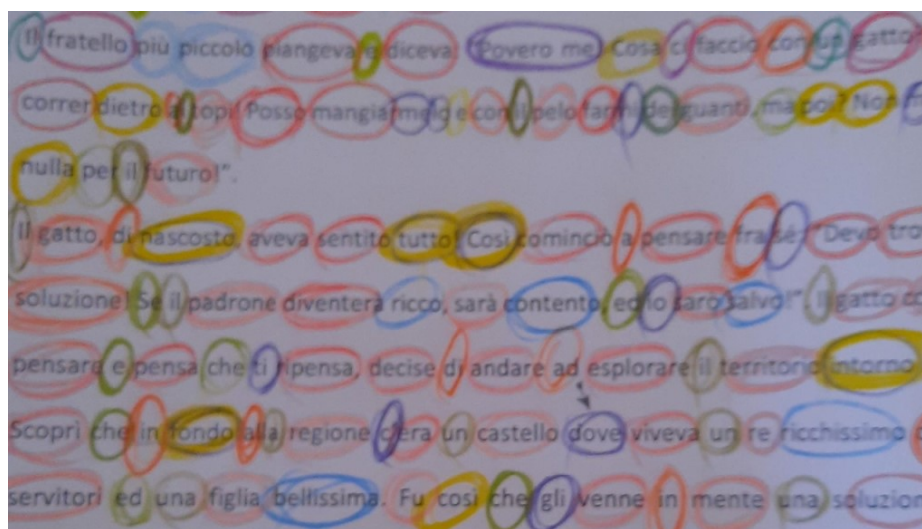 Il fratello più piccolo piangeva e diceva: "Povero me! Cosa ci faccio con un gatto
correr dietro ai topi! Posso mangiarmelo e con il pelo farmi dei guanti, ma poi? Non
nulla per il futuro!".
Il gatto, di nascosto, aveva sentito tutto! Così cominciò a pensare fra sé: "Devo tro
soluzione! Se il padrone diventerà ricco, sarà contento, ed io sarò salvo!". Il gatto
pensare e pensa che ti ripensa, decise di andare ad esplorare il territorio intorno
Scoprì che in fondo alla regione c'era un castello dove viveva un re ricchissimo
servitori ed una figlia bellissima. Fu così che gli venne in mente una soluzion